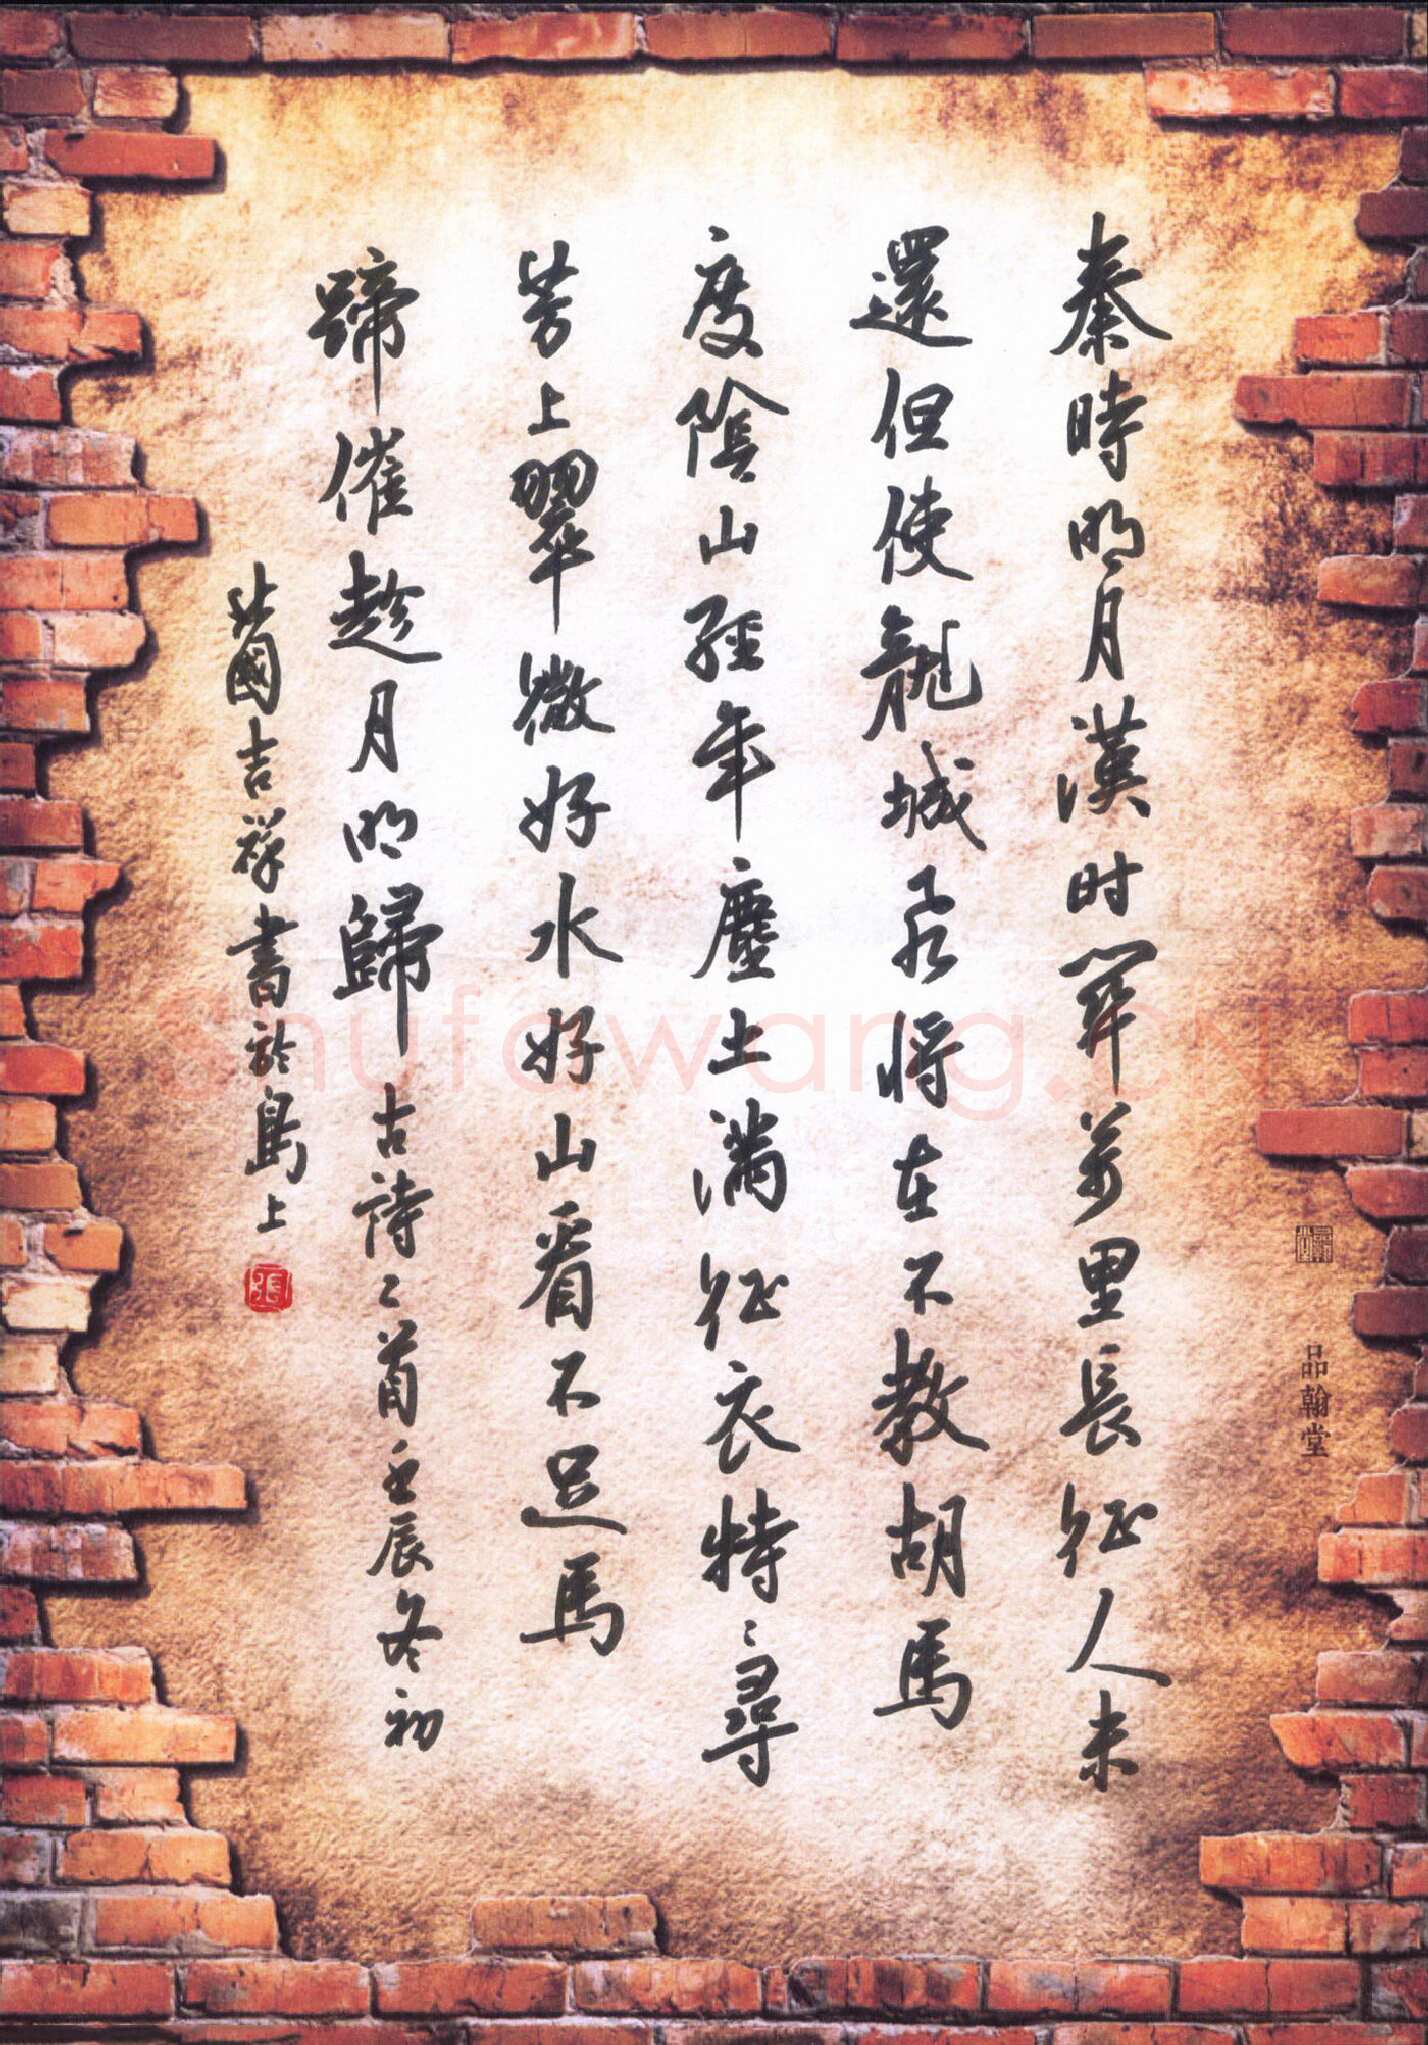 品翰堂
秦時明月漢时関萬里長征人未
還但使龍城飛將在不教胡馬
度陰山經年塵土滿征衣特〻尋
芳上翠微好水好山看不足馬
蹄催趁月明歸 古詩二首壬辰冬初
北國吉祥書於島上
張
shufawang.cn